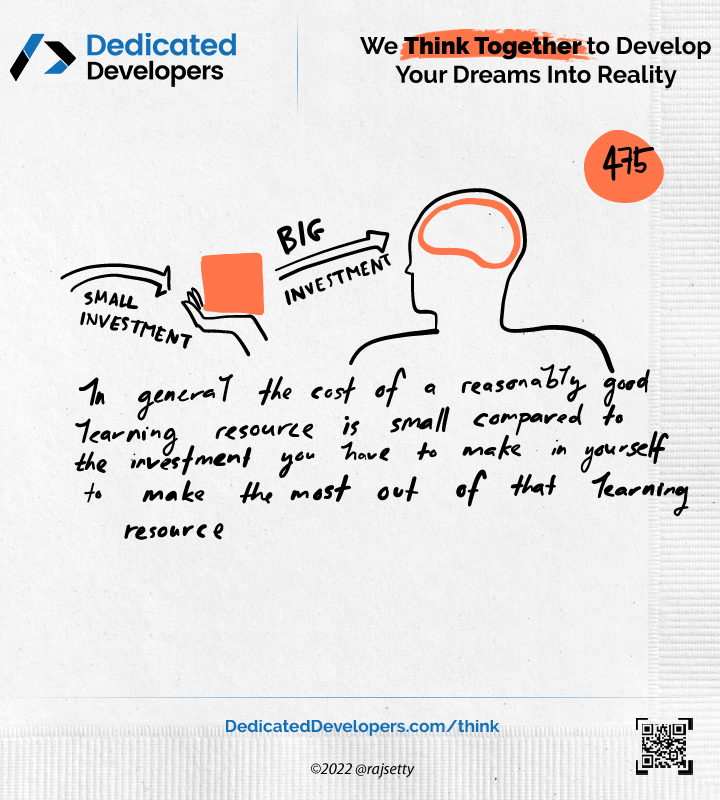 Dedicated
Developers
We Think Together to Develop
Your Dreams Into Reality
475
BIG
INVESTMENT
SMALL
INVESTMENT
In general the cost of a reasonably good
learning resource is small compared to
the investment you have to make in yourself
to make the most out of that learning
resource
DedicatedDevelopers.com/think
©2022 @rajsetty